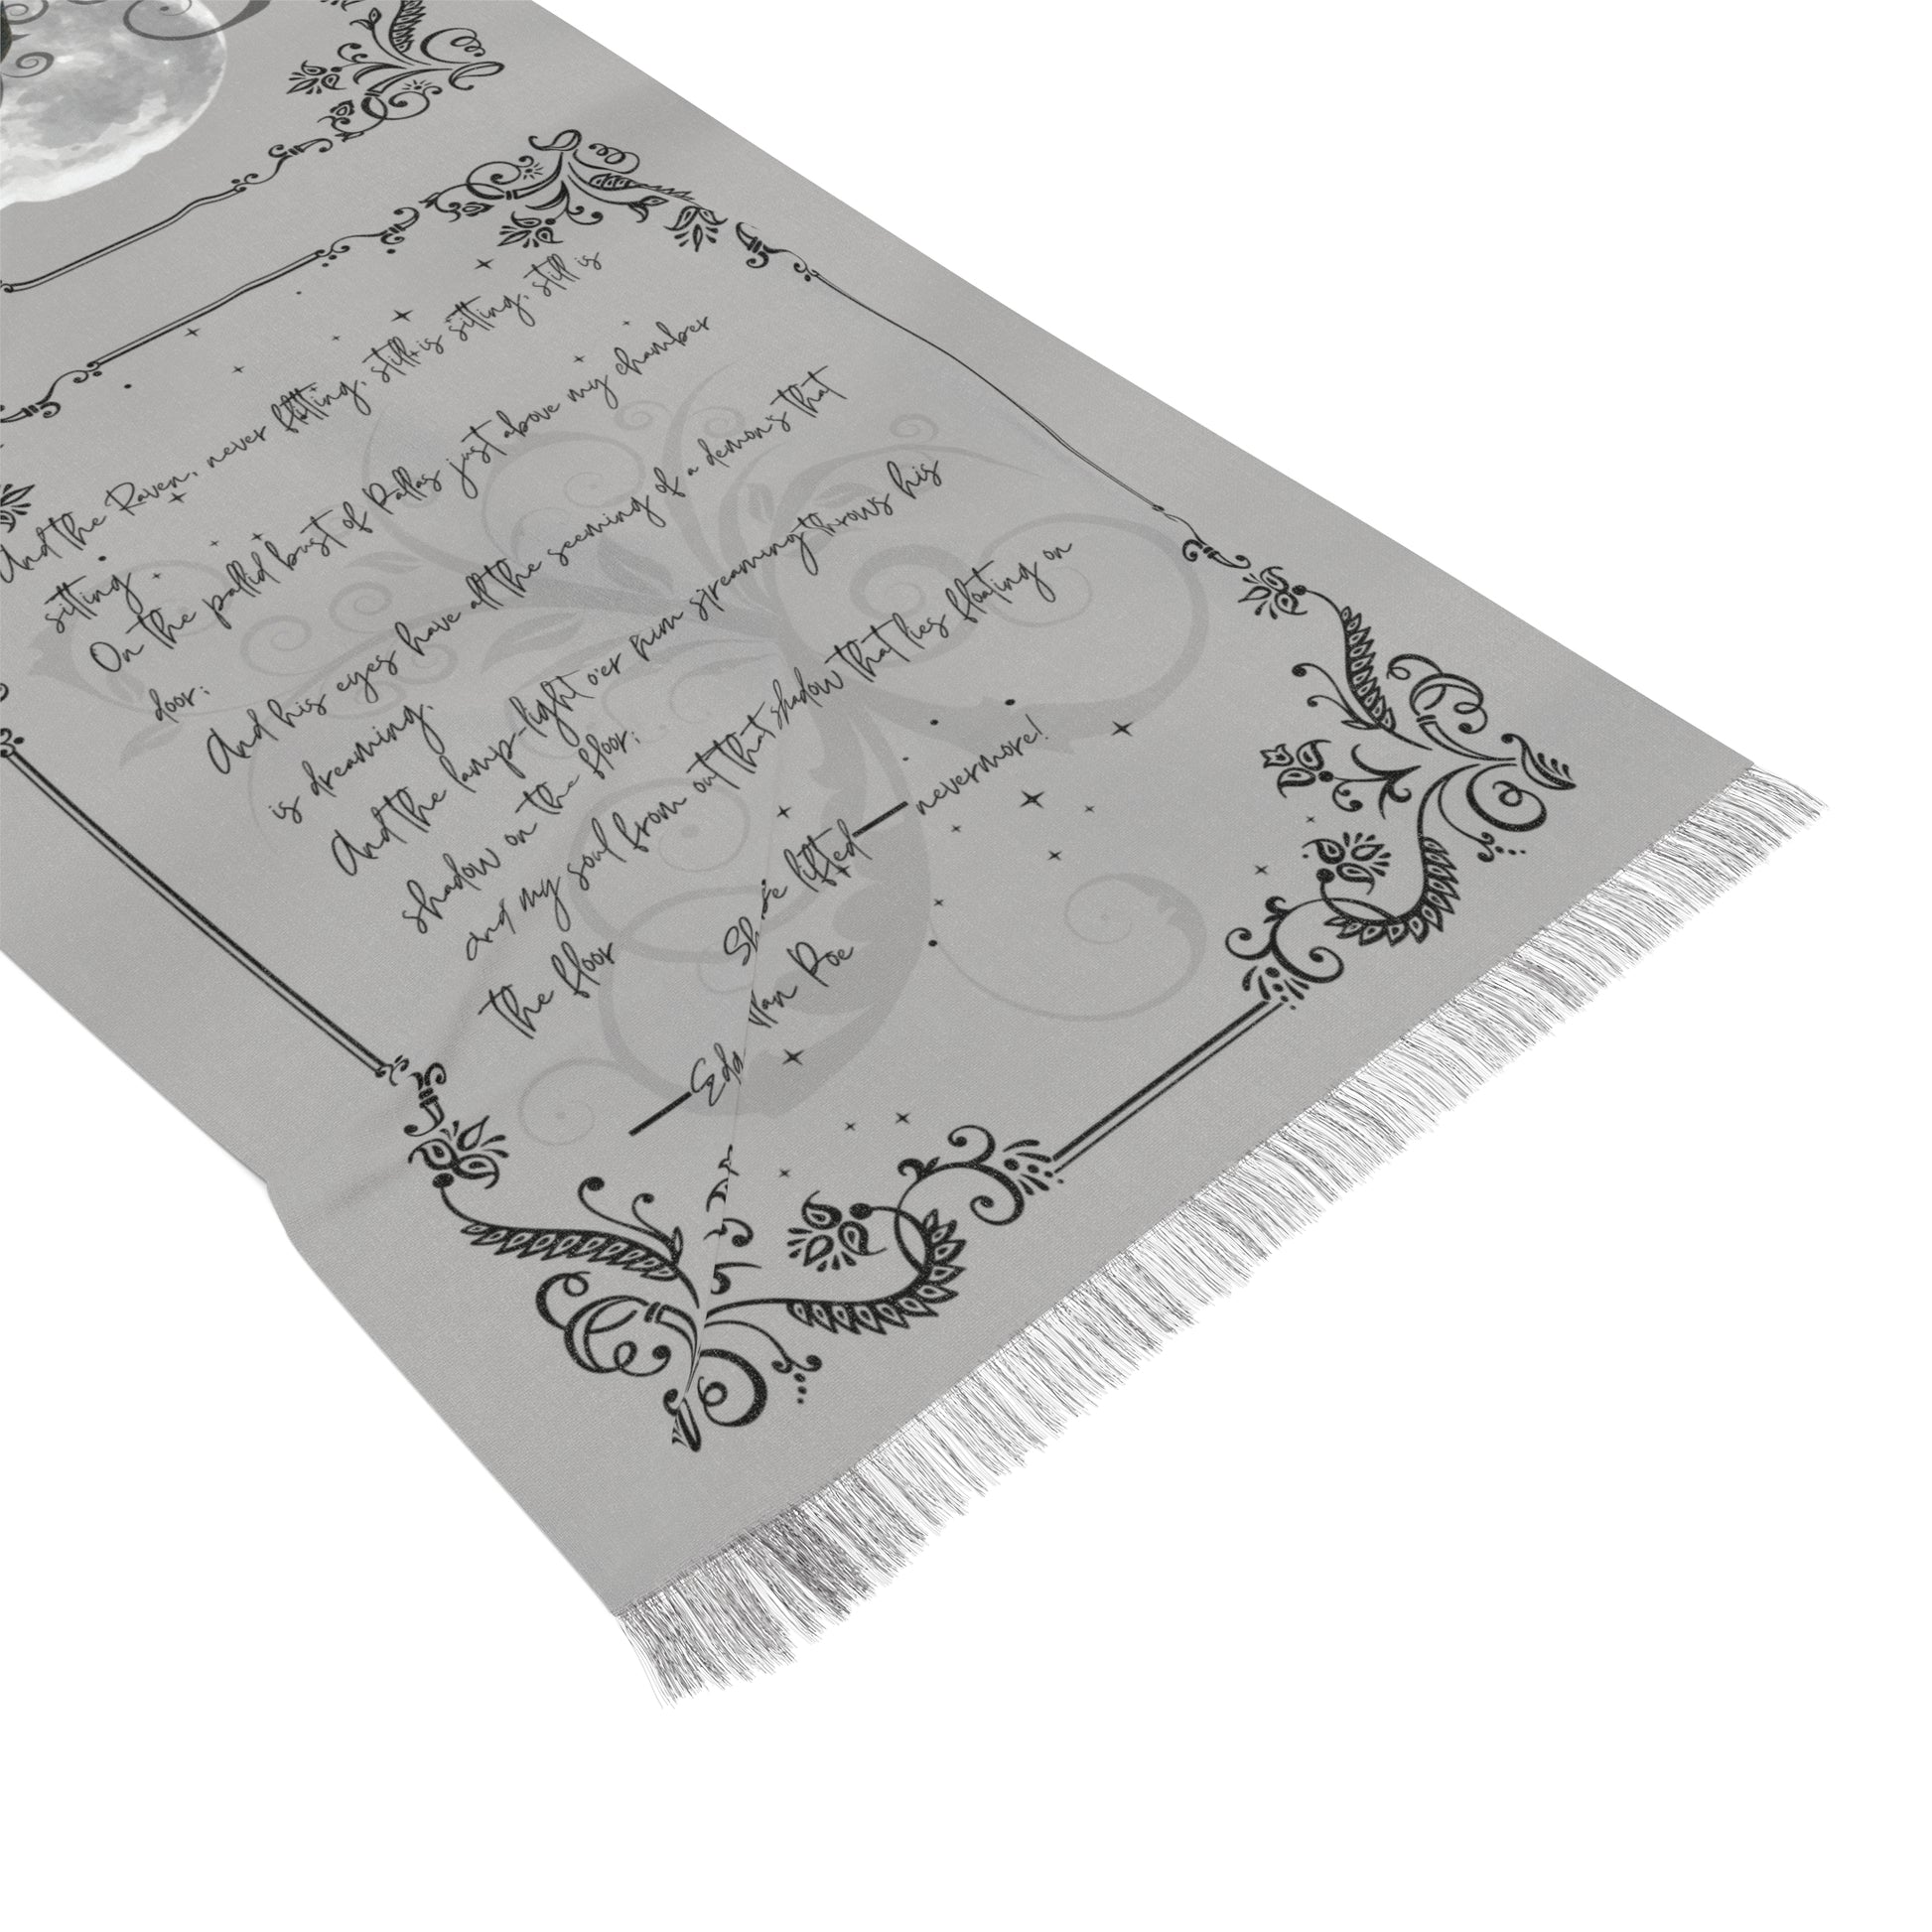 And the Raven, never flitting, still is sitting, still is
sitting
On the pallid bust of Pallas just above my chamber
door;
And his eyes have all the seeming of a demon's that
is dreaming,
And the lamp-light o'er him streaming throws his
shadow on the floor;
And my soul from out that shadow that lies floating on
the floor
lifted — nevermore!
— Poe